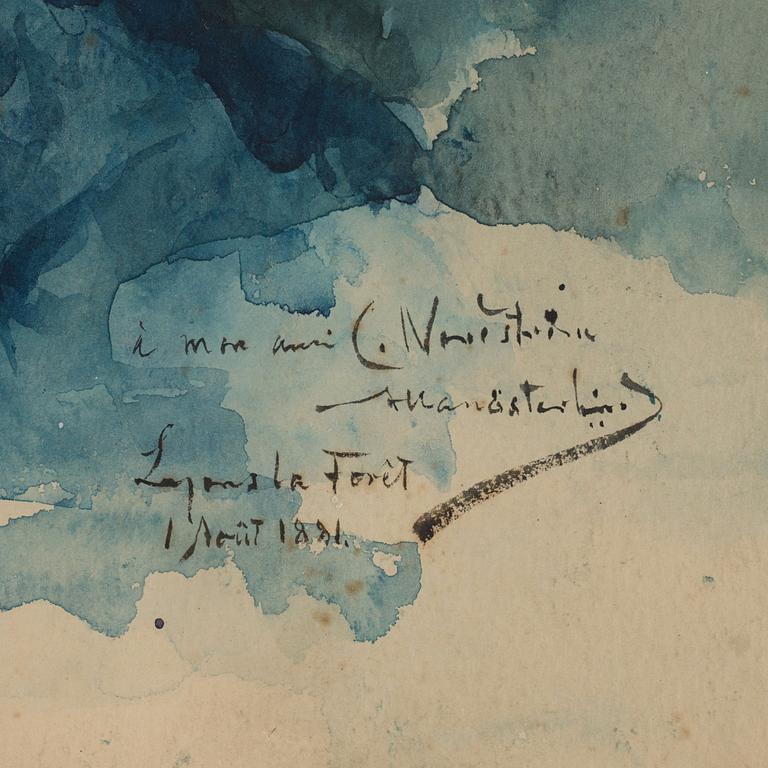 à mon ami C. Nordström
Allan Österlind
Lyons la Forêt
1 Août 1881.